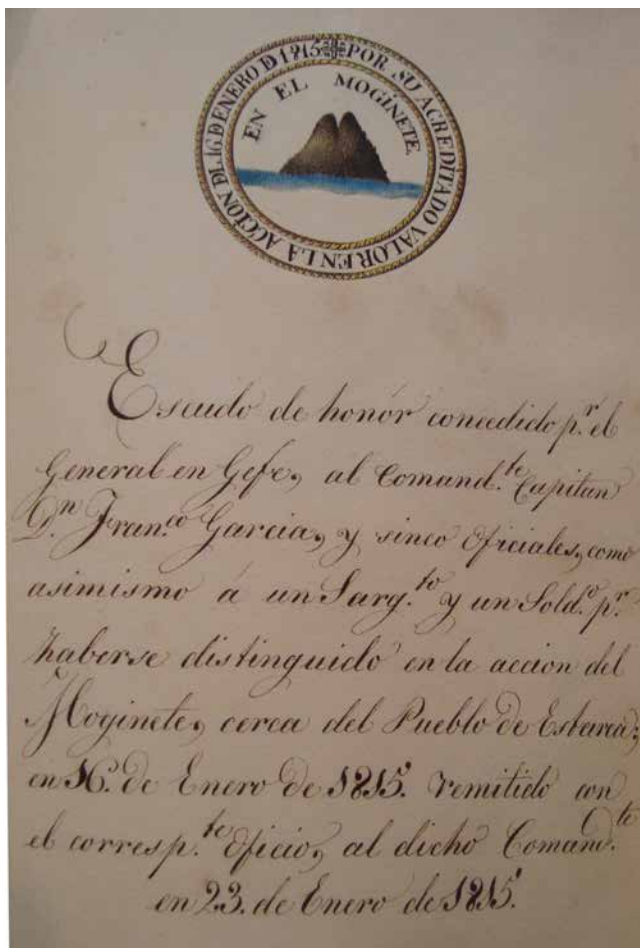 POR SU ACREDITADO VALOR EN LA ACCION DL 16 D ENERO D 1815
EN EL MOGINETE.
Escudo de honór concedido p.r el
General en Gefe, al Comand.te Capitan
D.n Fran.co Garcia, y sinco Oficiales, como
asimismo á un Sarg.to y un Sold.o p.r
haberse distinguido en la accion del
Moginete, cerca del Pueblo de Esbarca;
en 16. de Enero de 1815. remitido con
el corresp.te Oficio, al dicho Comand.te
en 23. de Enero de 1815.